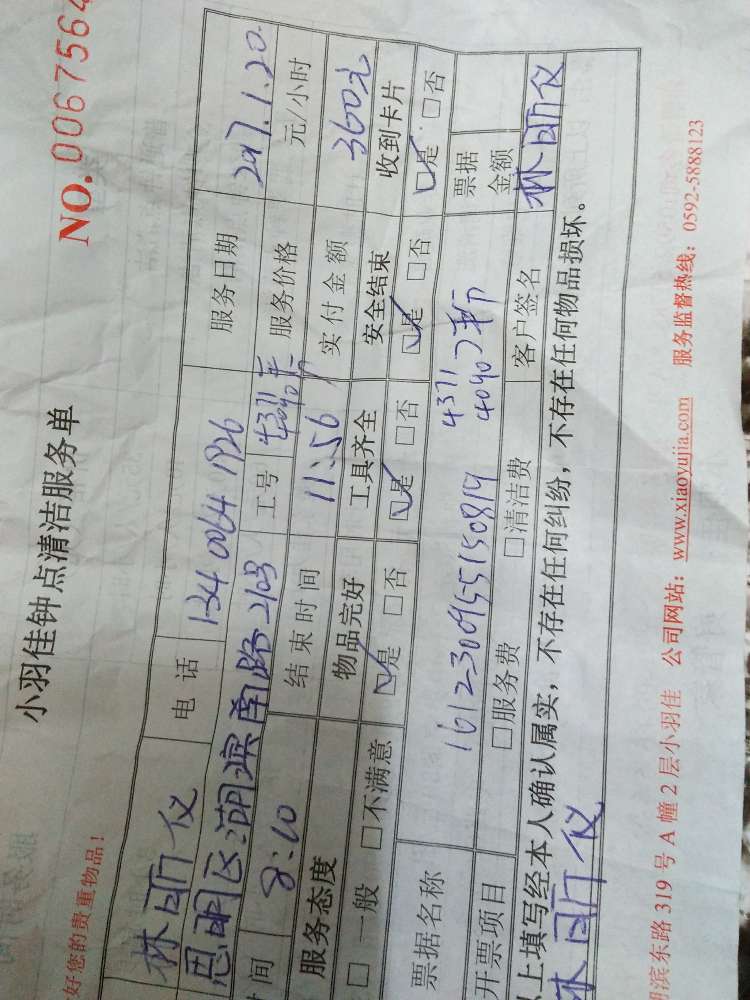 小羽佳钟点清洁服务单
NO. 0067564
好您的贵重物品！
电话 134 0064 1926 服务日期 2017.1.20
思明区湖滨南路2103 工号 4371 4090 服务价格 元/小时
时间 8:10 结束时间 11:56 实付金额 360元
服务态度 物品完好 工具齐全 安全结束 收到卡片
□一般 □不满意 □是 □否 □是 □否 □是 □否 □是 □否
票据名称 1612300955150819 4371 4090 票据金额
开票项目 □服务费 □清洁费 客户签名
以上填写经本人确认属实，不存在任何纠纷，不存在任何物品损坏。
滨东路 319 号 A 幢 2 层小羽佳 公司网站：www.xiaoyujia.com 服务监督热线：0592-5888123